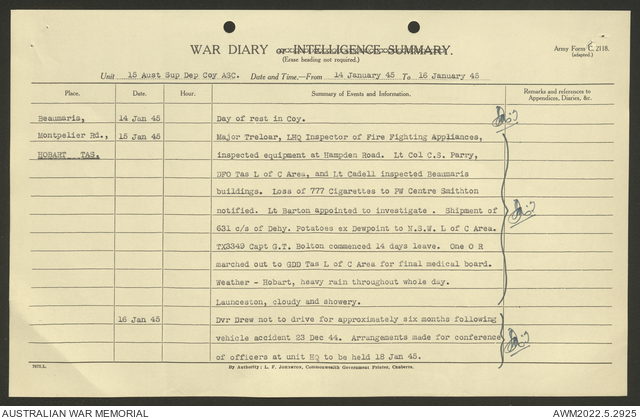 WAR DIARY or INTELLIGENCE SUMMARY.
(Erase heading not required.)
Army Form C. 2118.
(adapted.)
Unit 15 Aust Sup Dep Coy ASC. Date and Time.—From 14 January 45 To 16 January 45
Place. Date. Hour. Summary of Events and Information. Remarks and references to
Appendices, Diaries, &c.
Beaumaris, 14 Jan 45 Day of rest in Coy.
Montpelier Rd., 15 Jan 45 Major Treloar, LHQ Inspector of Fire Fighting Appliances,
HOBART TAS. inspected equipment at Hampden Road. Lt Col C.S. Parry,
DFO Tas L of C Area, and Lt Cadell inspected Beaumaris
buildings. Loss of 777 Cigarettes to PW Centre Smithton
notified. Lt Barton appointed to investigate . Shipment of
631 c/s of Dehy. Potatoes ex Dewpoint to N.S.W. L of C Area.
TX3349 Capt G.T. Bolton commenced 14 days leave. One O R
marched out to GDD Tas L of C Area for final medical board.
Weather - Hobart, heavy rain throughout whole day.
Launceston, cloudy and showery.
16 Jan 45 Dvr Drew not to drive for approximately six months following
vehicle accident 23 Dec 44. Arrangements made for conference
of officers at unit HQ to be held 18 Jan 45.
By Authority: L. F. Johnston, Commonwealth Government Printer, Canberra.
AUSTRALIAN WAR MEMORIAL AWM2022.5.2925